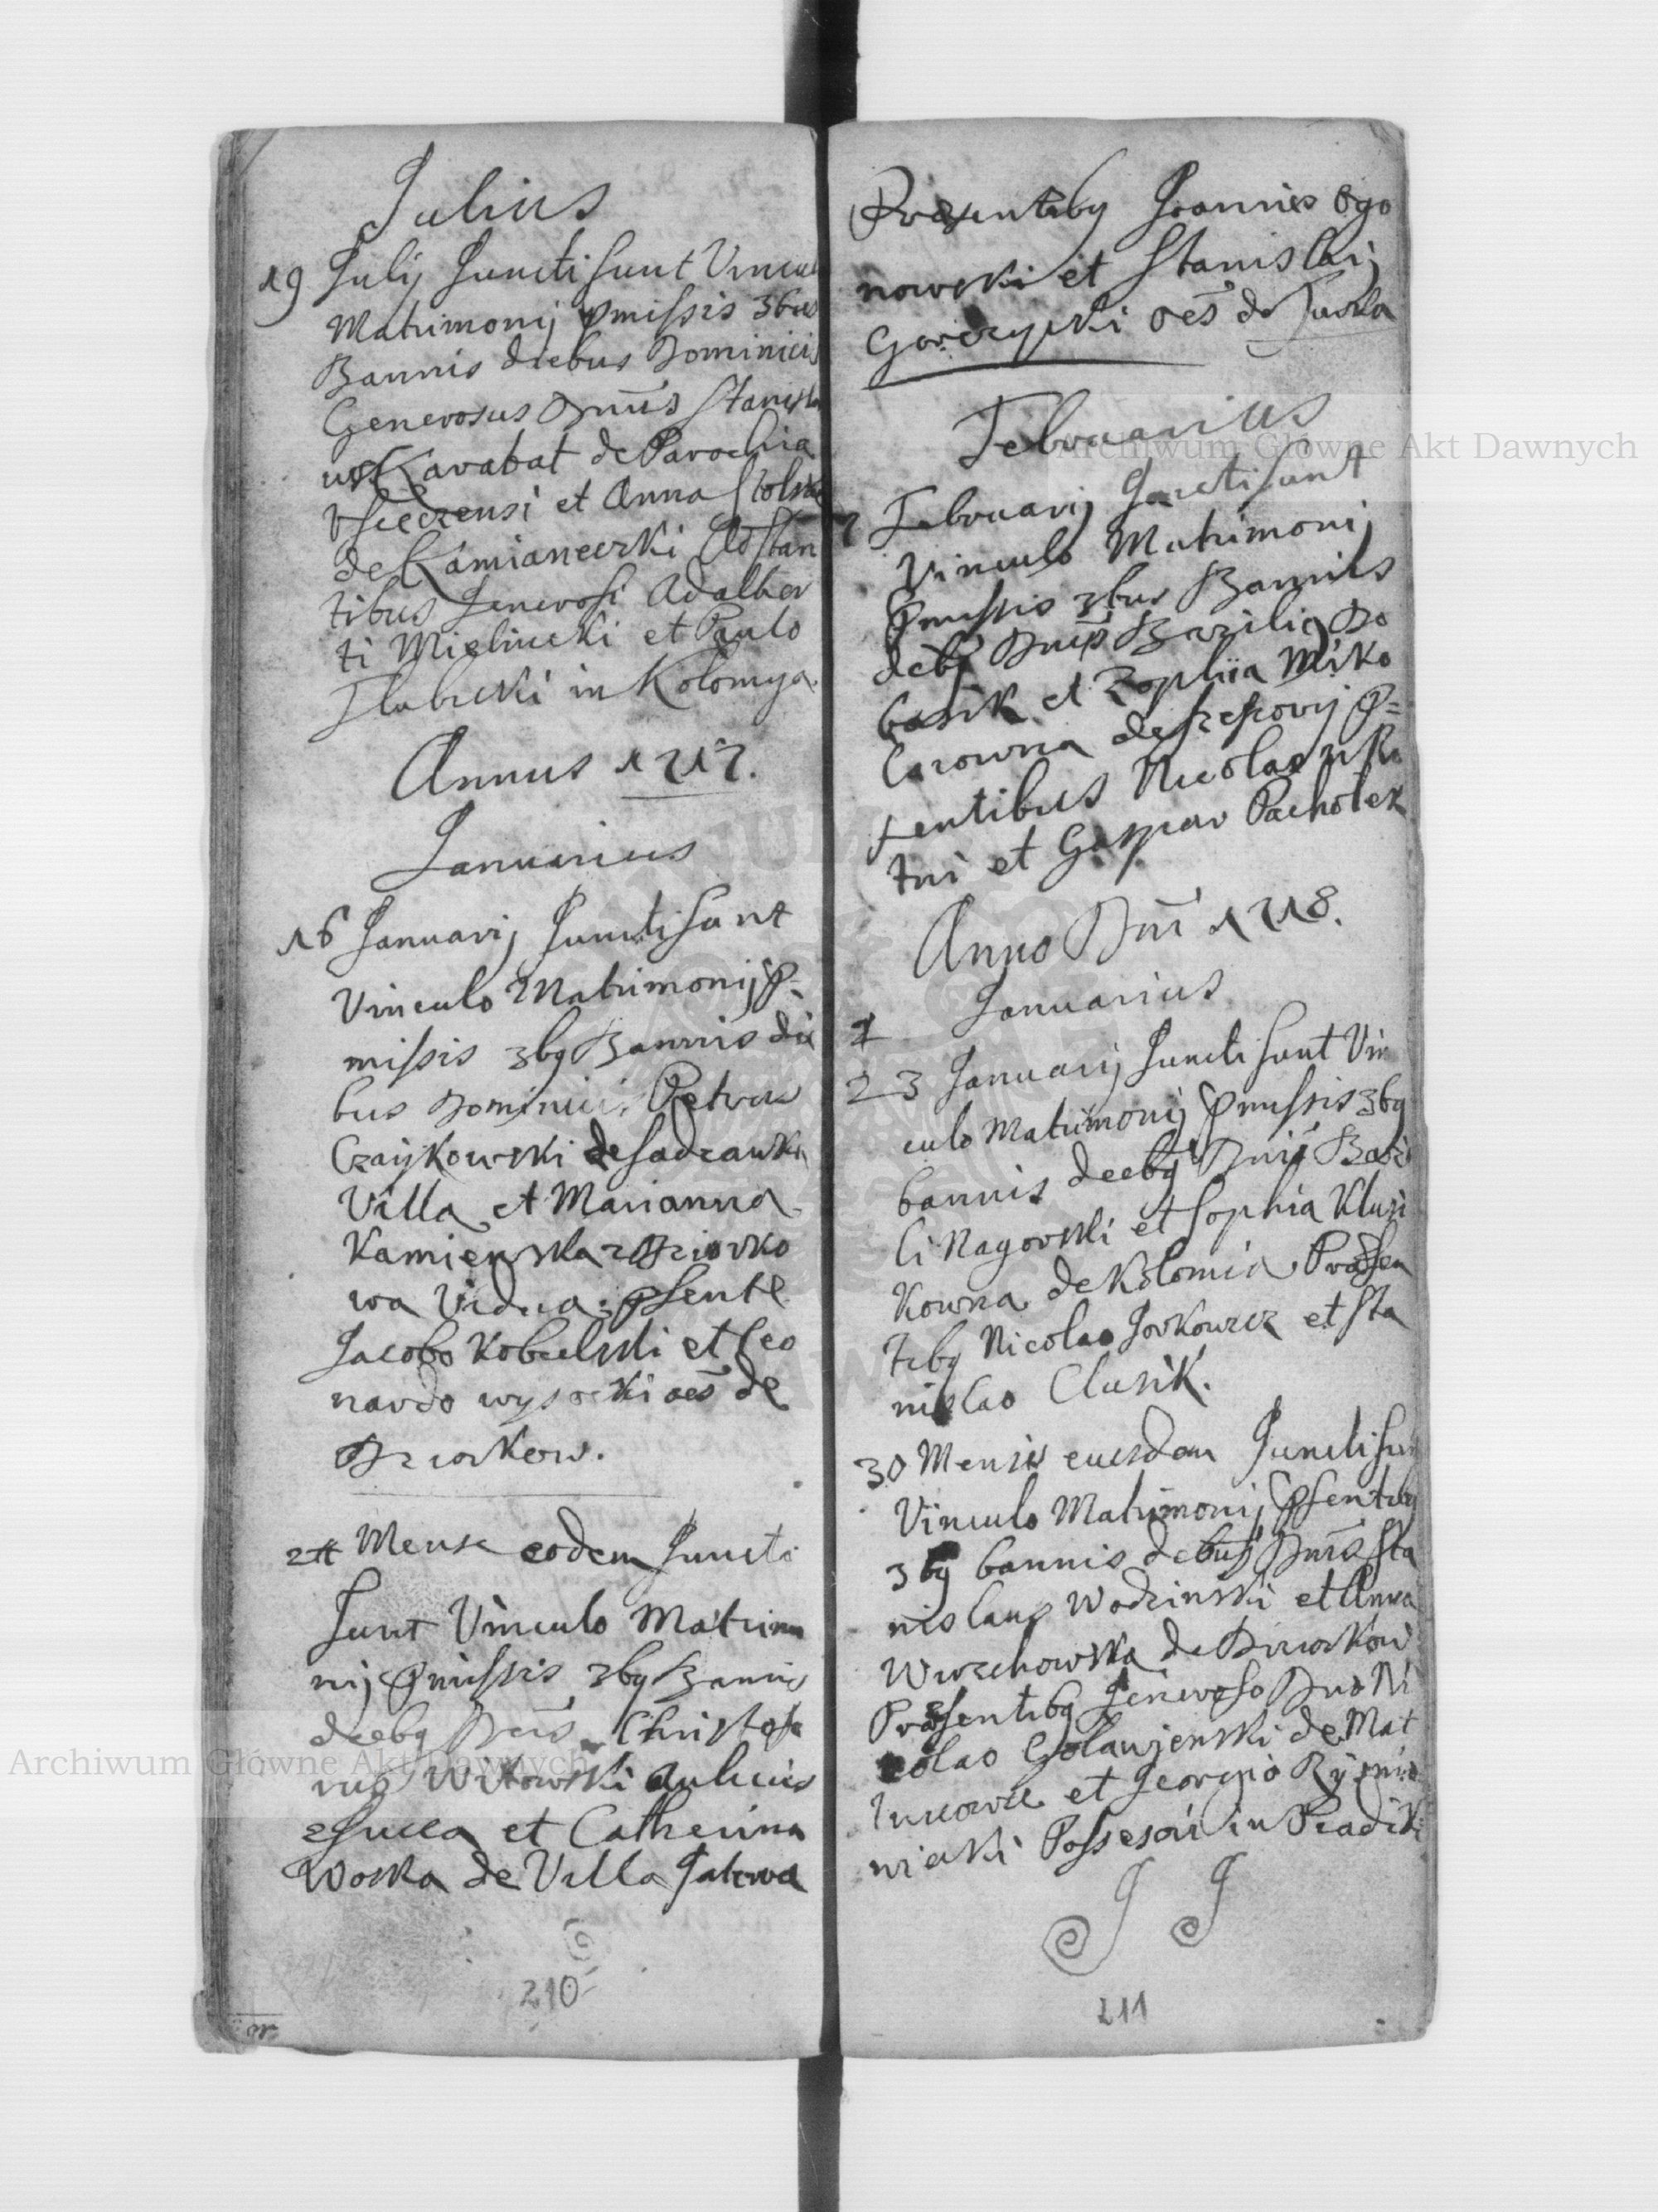 Julius
19 Julij Juncti sunt Vincul
Matrimonij pmissis 3bus
Bannis diebus Dominicis
Generosus Dnus Stanisla
us Karabat de Parochia
et Anna Stolska
de Kamianecrki Adstan
tibus Generosi Adalber
ti Mielnicki et Paulo
in Kolomya.
Annus 1717.
Januarius
16 Januarij Juncti sunt
Vinculo Matrimonij p-
missis 3bq Bannis die
bus Dominicis Petrus
Czaijkowski de Sadzawka
Villa et Marianna
Kamienska z Dziorko
wa Vidua psente
Jacobo Kobielski et Leo
nardo wysocki oēs de
Dziorkow.
24 Mense eodem Juncti
Sunt Vinculo Matrimo
nij pmissis 3bq Bannis
diebq Dnis Christofo
rus Witowski Aulicus
et Catherina
Woska de Villa
210
Præsentibq Joannis Ogo
nowski et Stanislaij
Gorczycki oēs de
Februarius
7 Februarij Juncti sunt
Vinculo Matrimonij
pmissis 3bus Bannis
debq Dnis Bazilig Do
basik et Zophiia Miko
larowna de p=
sentibus Nicolao
et Gaspar Pacholek
Anno Dni 1718.
Januarius
1
23 Januarij Juncti sunt Vin
culo Matrimonij pmissis 3bq
bannis diebq Dnis Basi
li Nagorski et Sophia Klusi
kowna de Kolomia Præsen
tibq Nicolao Jorkowicz et Sta
nislao Clusik.
30 Mensis eiusdem Juncti sun
Vinculo Matrimonij psentibq
3bq bannis debus Dnis Sta
nislaus Wodzinski et Anna
Wirzchowska de Dziorkow
Præsentibq Generoso Dno Ni
colao Golawjenski de Mat
et Georgio
Possesori in
JJ
211
Archiwum Główne Akt Dawnych
Archiwum Główne Akt Dawnych